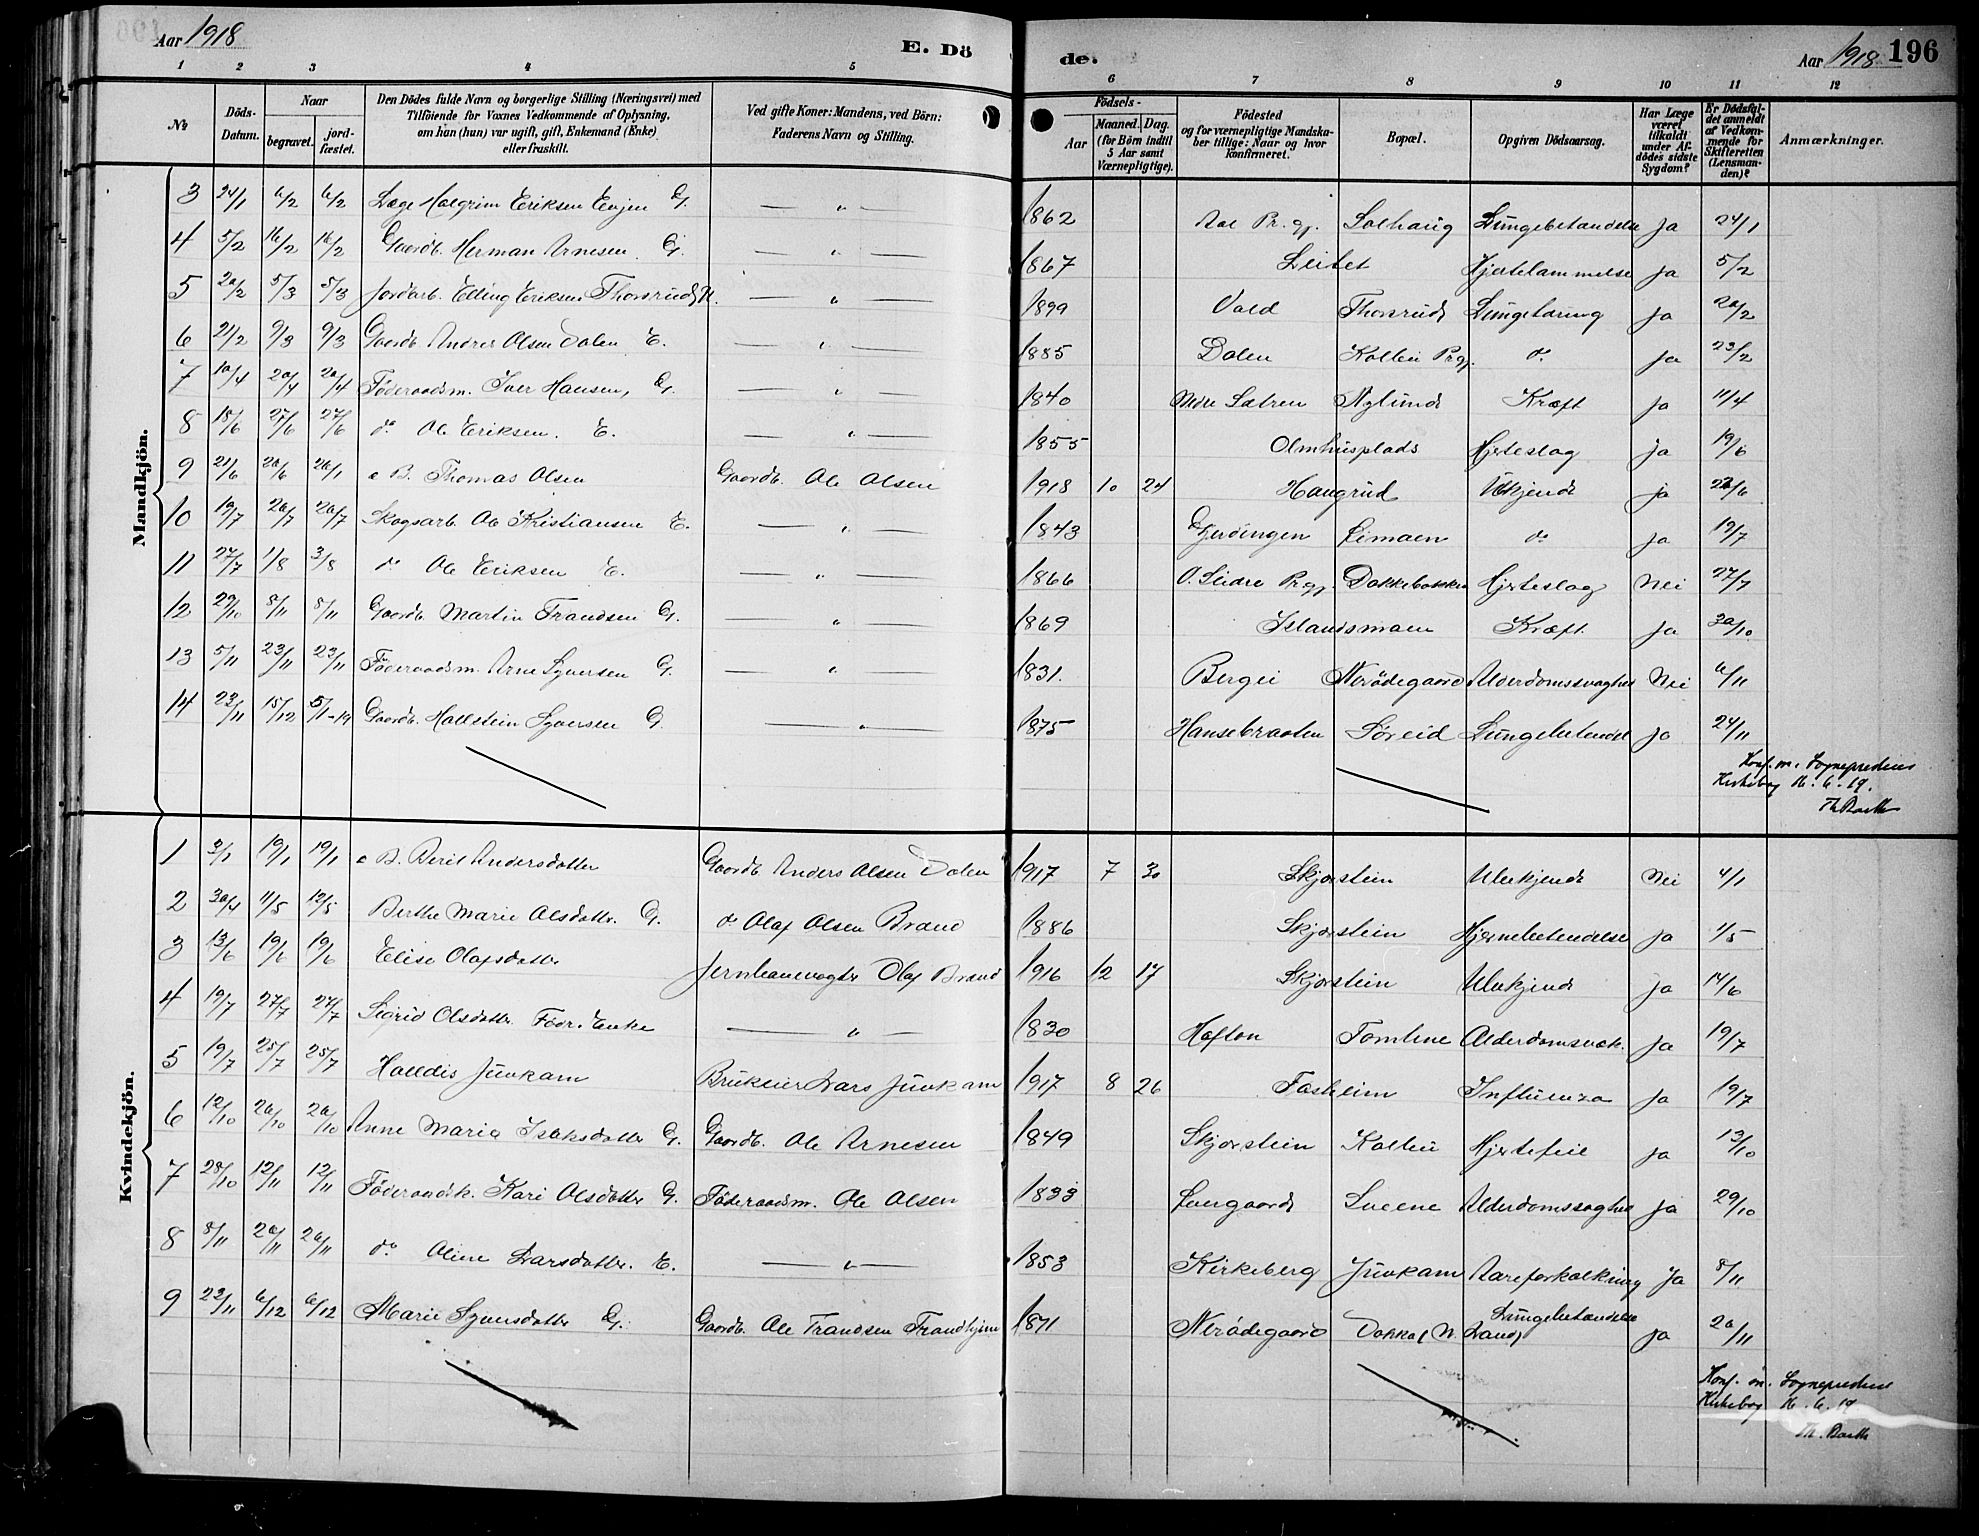 Aar 1918 E. Dö de. Aar 1918 196
1 2 3 4 5 6 7 8 9 10 11 12
No. Döds-Datum. Naar begravet. jord-fæstet. Den Dödes fulde Navn og borgerlige Stilling (Næringsvei) med Tilföiende for Voxnes Vedkommende af Oplysning, om han (hun) var ugift, gift, Enkemand (Enke) eller fraskilt. Ved gifte Koner: Mandens, ved Börn: Faderens Navn og Stilling. Födsels- Aar Maaned. Dag. (for Börn indtil 5 Aar samt Værnepligtige). Födested og for værnepligtige Mandskaber tillige: Naar og hvor konfirmeret. Bopæl. Opgiven Dödsaarsag. Har Læge været tilkaldt under Afdödes sidste Sygdom? Er Dödsfaldet anmeldt af Vedkommende for Skifteretten (Lensmanden)? Anmærkninger.
Mandkjön.
3 24/1 6/2 6/2 Læge Halgrim Eriksen Evjen G. — " — 1862 Aal Pr.gj. Solhaug Lungebetændelse ja 24/1
4 5/2 16/2 16/2 Gaardb. Herman Arnesen G. — " — 1867 Leitet Hjertelammelse ja 5/2
5 20/2 5/3 5/3 Jordarb. Elling Eriksen Thorsrud — " — 1899 Vold Thorsrud Lungetæring ja 20/2
6 21/2 9/3 9/3 Gaardb. Andres Olsen Dalen E. — " — 1885 Dalen Kolbu Pr.gj. do ja 23/2
7 10/4 20/4 20/4 Föderaadsm. Iver Hansen, G. — " — 1840 Nedre Sætren Nylund Kræft ja 11/4
8 18/6 27/6 27/6 do Ole Eriksen. E. — " — 1855 Olmhusplads Hjerteslag ja 19/6
9 21/6 28/6 e B. Thomas Olsen Gaardb. Ole Olsen 1918 10 24 Haugrud Ukjendt ja
10 19/7 26/7 26/7 Skogsarb. Ole Kristiansen E. — " — 1843 Gjerdingen do ja 19/7
11 27/7 1/8 3/8 do Ole Eriksen E. — " — 1866 Ö. Slidre Pr.gj. Dokkebakken Hjerteslag Nei 27/7
12 29/10 8/11 8/11 Gaardb. Martin Frandsen G. — " — 1869 Islandsmoen Kræft ja 30/10
13 5/11 23/11 23/11 Föderaadsm. Arne Syversen G. — " — 1831. Bergei Nerödegaard Alderdomssvaghed Nei 6/11
14 23/11 15/12 5/1-19 Gaardb. Hallstein Syversen G. — " — 1875 Hansebraaten Söreid Lungebetændelse ja 24/11
Konf. m. Sogneprestens
Kirkebog 16.6.19.
Th. Barth
Kvindekjön.
1 3/1 19/1 19/1 e B. Beret Andersdatter Gaardb. Anders Olsen Dalen 1917 7 30 Skjørstein Ubekjendt Nei 4/1
2 30/4 11/5 12/5 Berthe Marie Olsdatter. G. do Olaf Olsen Brand 1886 Skjørstein Hjernebetændelse ja 1/5
3 13/6 19/6 19/6 Elise Olafsdatter Jernbanevogter Olaf Brand 1916 12 17 Skjørstein Ubekjend ja 14/6
4 19/7 27/7 27/7 Sigrid Olsdatter Födr. Enke — " — 1830 Hafton Tomlene Alderdomssvak. ja 19/7
5 19/7 25/7 25/7 Halldis Juvkam Brukeier Lars Juvkam 1917 8 26 Fosheim Influenza ja 19/7
6 12/10 20/10 20/10 Anne Marie Isaksdatter G. Gaardb. Ole Arnesen 1849 Skjørstein Kolbu Hjertefeil ja 13/10
7 28/10 12/11 12/11 Föderaadk. Kari Olsdatter G. Föderaadsm. Ole Olsen 1833 Sveene Alderdomssvaghed ja 29/10
8 8/11 20/11 20/11 do Oline Larsdatter. E. — " — 1853 Kirkeberg Juvkam Aareforkalkning Ja 8/11
9 23/11 6/12 6/12 Marie Syversdatter G. Gaardb. Ole Frandsen 1871 Nerödegaard Dokka, N. Land, Lungebetændelse ja
Konf. m. Sogneprestens
Kirkebog 16.6.19
Th. Barth